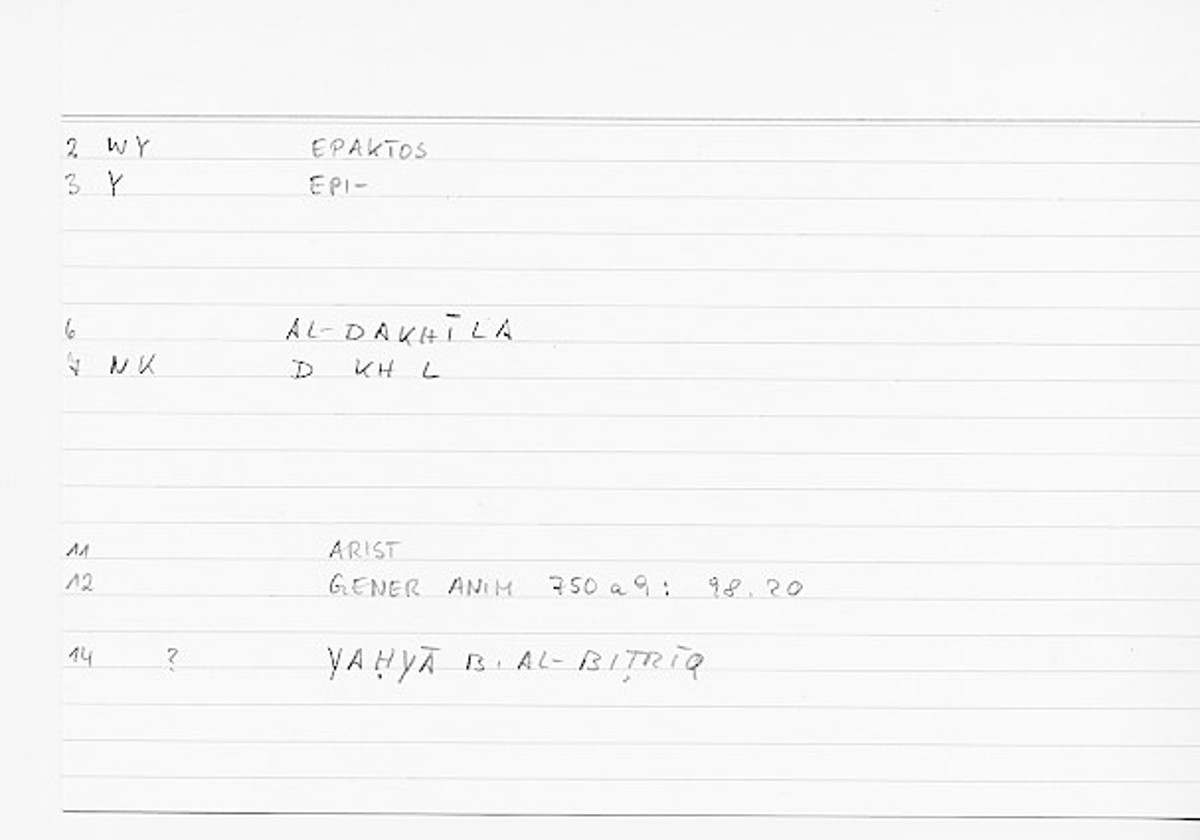 2 WY EPAKTOS
3 Y EPI-
6 AL-DAKHĪLA
7 NK D KH L
11 ARIST
12 GENER ANIM 750 a 9: 98.20
14 ? YAḤYĀ B. AL-BIṬRĪQ